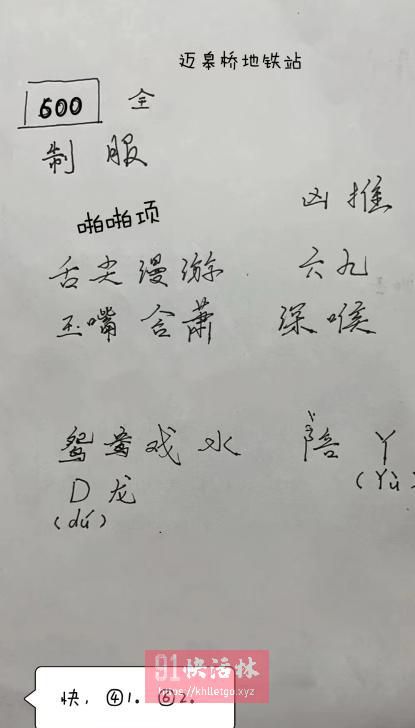 迈皋桥地铁站
600 全
制服
啪啪项
凶推
舌尖漫游 六九
玉嘴含萧 深喉
鸳鸯戏水 陪丫
D龙 (Yù)
(dú)
91快活林
https://khlletgo.xyz
快，④1。⑥2。